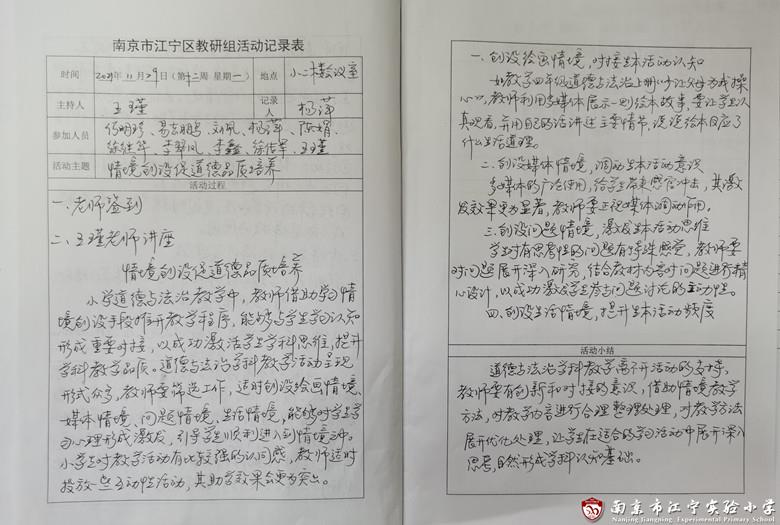 南京市江宁区教研组活动记录表
时间 2021年11月29日(第十二周 星期一) 地点 小二楼会议室
主持人 王瑾 记录人 杨萍
参加人员
活动主题 情境创设促道德品质培养
活动过程
一、老师签到
二、王瑾老师讲座
情境创设促道德品质培养
小学道德与法治教学中,教师借助学习情
境创设手段推开教学程序,能够与学生学习认知
形成重要对接,以成功激活学生学科思维,提升
学科教学品质。道德与法治学科教学活动呈现
形式众多,教师要筛选工作,适时创设绘画情境、
媒体情境、问题情境、生活情境,能够对学生学
习心理形成激发,引导学生顺利进入到情境之中。
小学生对教学活动有比较强的认同感,教师适时
投放一些互动性活动,其助学效果会更为突出。
一、创设绘画情境,对接生本活动认知
如教学四年级道德与法治上册《少让父母为我操
心》,教师利用多媒体展示一则绘本故事,要让学生认
真观看,并用自己的话讲述主要情节,说说绘本反应了
什么生活道理。
二、创设媒体情境,调动生本活动意识
多媒体的广泛使用,给学生带来感官冲击,其激
发效果更为显著,教师要正视媒体调动作用。
三、创设问题情境,激发生本活动思维
学生对有思考性的问题有特殊感觉,教师要
对问题展开深入研究,结合教材内容对问题进行精
心设计,以成功激发学生参与问题讨论的主动性。
四、创设生活情境,提升生本活动频度
活动小结
道德与法治学科教学离不开活动的支持,
教师要有创新和对接的意识,借助情境教学
方法,对教学内容进行合理整理处理,对教学方法
展开优化处理,让学生在适合的学习活动中展开深入
思考,自然形成学科认知基础。
南京市江宁实验小学
Nanjing Jiangning Experimental Primary School